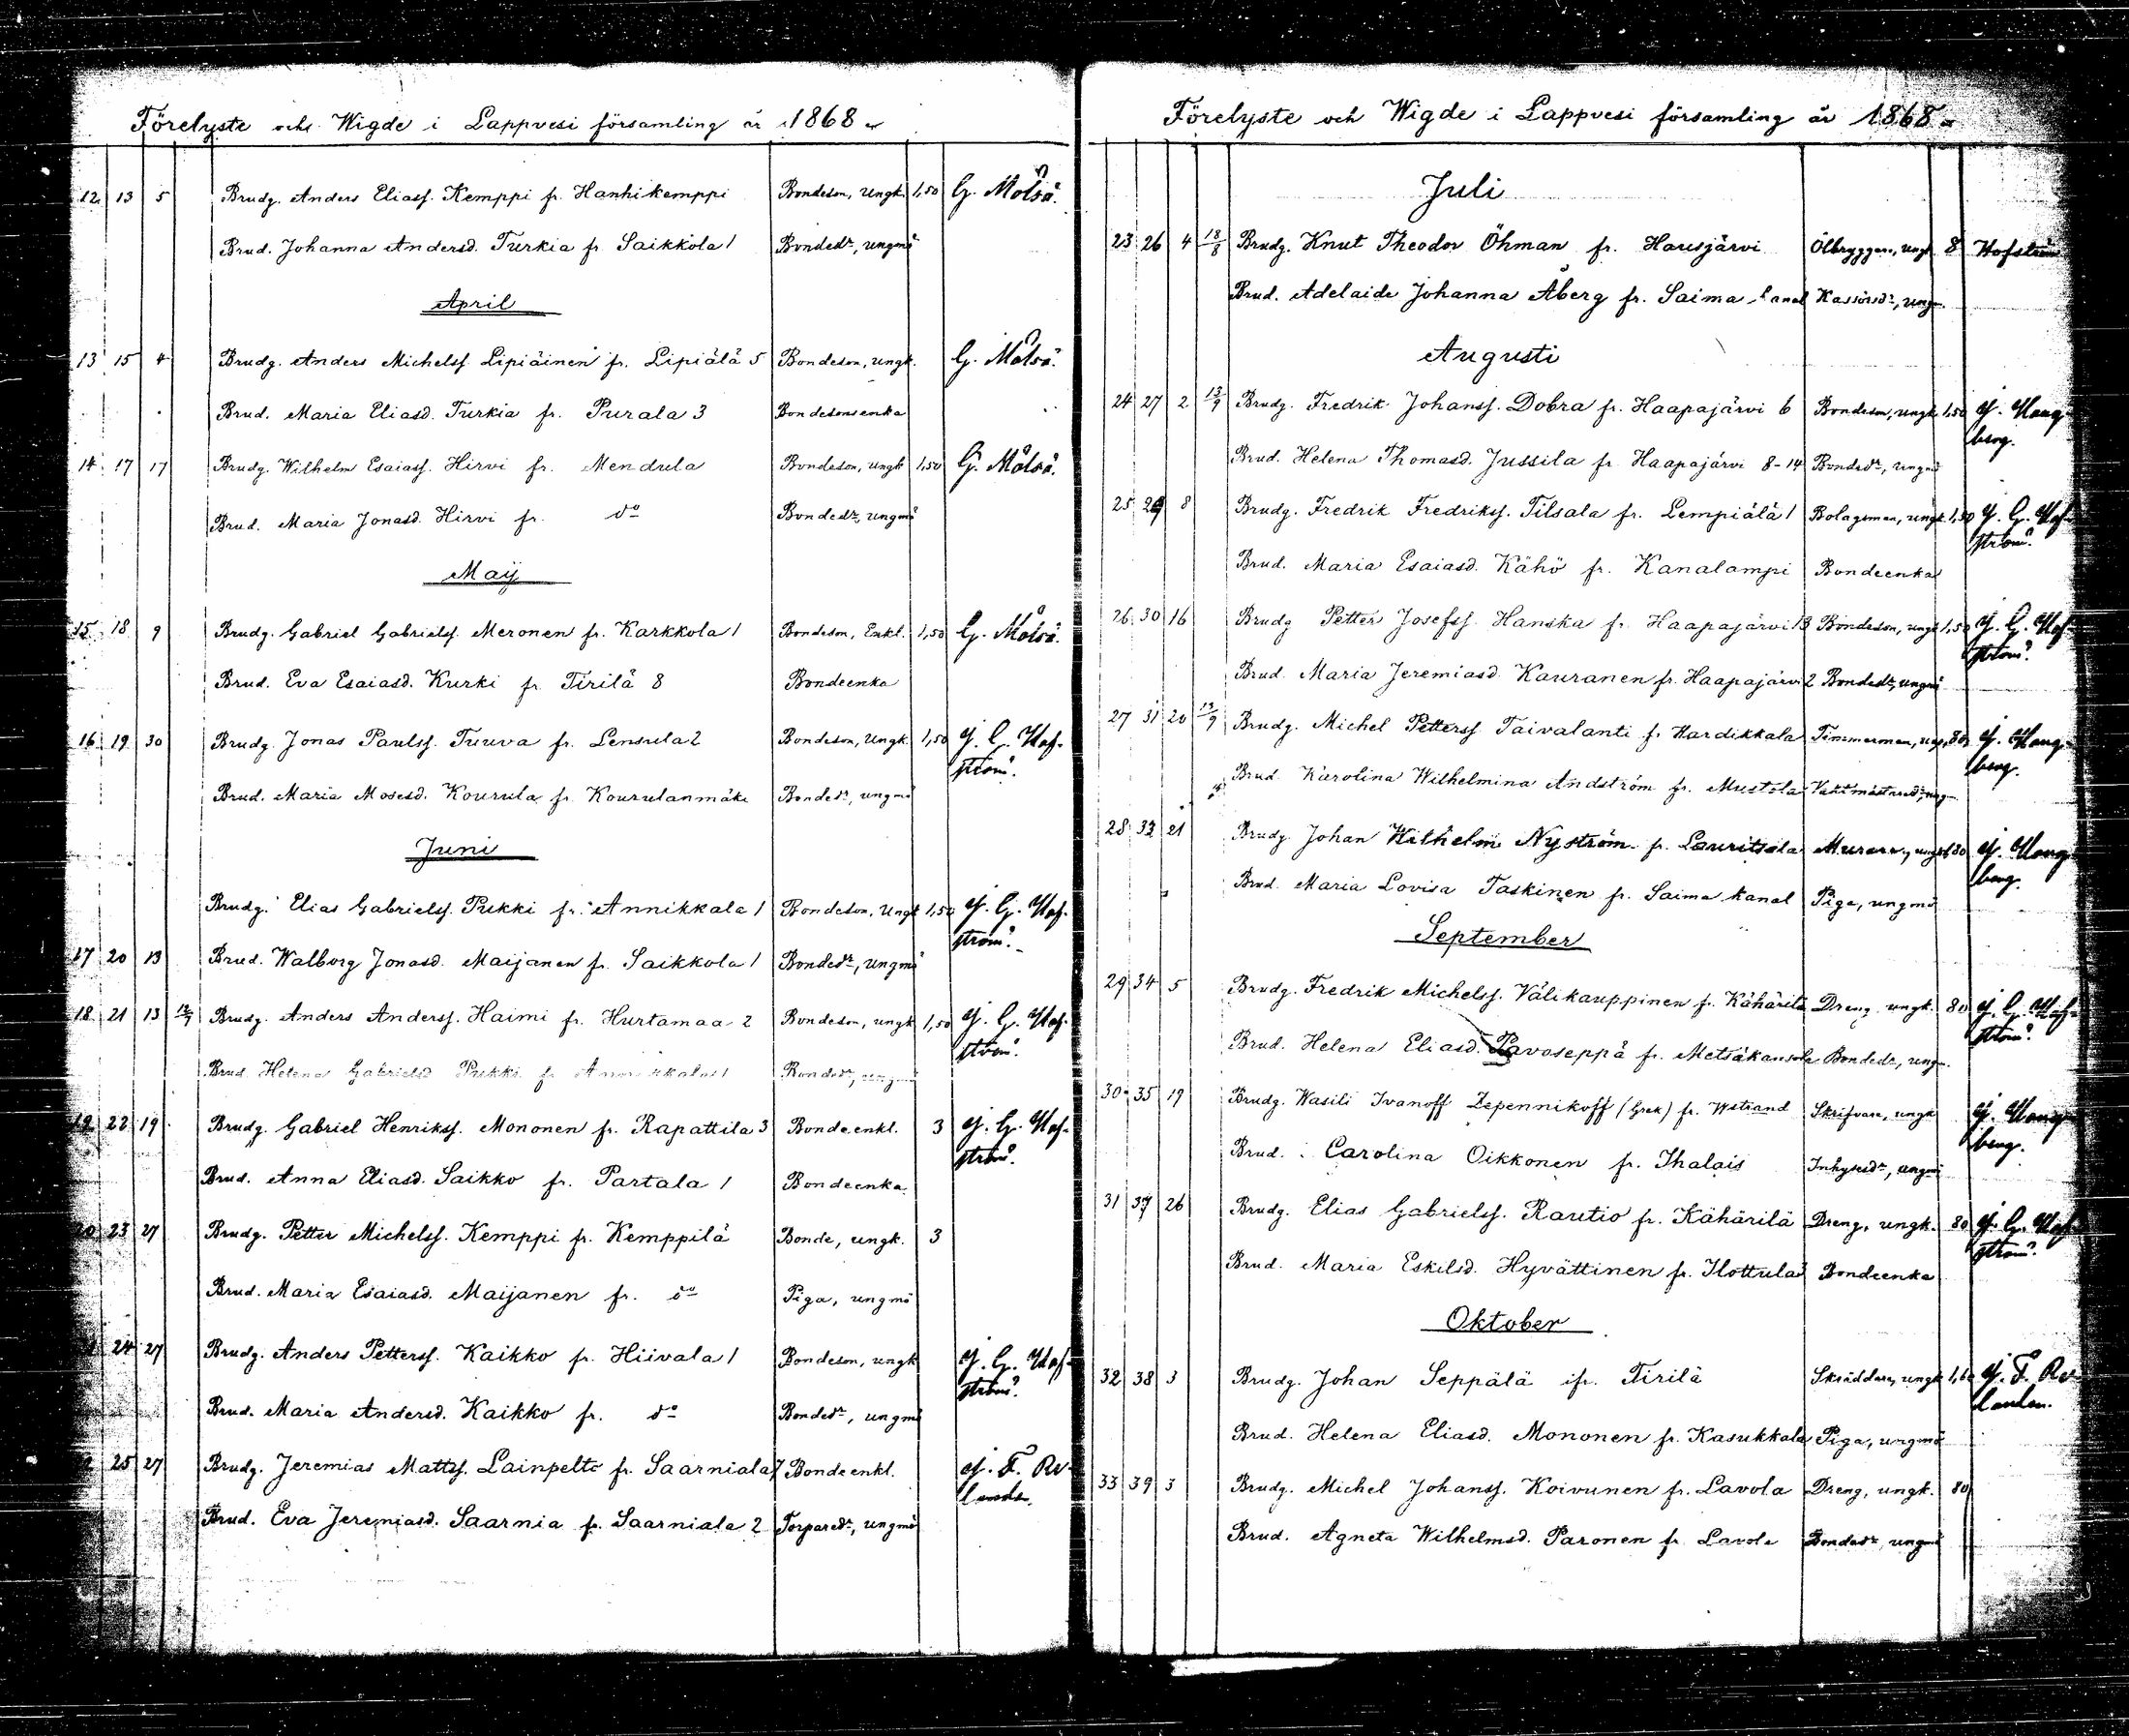 Förelyste och Wigde i Lappvesi församling år 1868
12 13 5 Brudg. Anders Eliass. Kemppi fr. Hanhikemppi Bondeson, Ungk. 1,50 G. Molsä.
Brud. Johanna Andersd. Turkia fr. Saikkola 1 Bondedr, ungmö
April
13 15 4 Brudg. Anders Michelss. Lipiäinen fr. Lipiälä 5 Bondeson, ungk. G. Molsä.
Brud. Maria Eliasd. Turkia fr. Purala 3 Bondesonsenka
14 17 17 Brudg. Wilhelm Esaiass. Hirvi fr. Mendula Bondeson, ungk 1,50 G. Molsä.
Brud. Maria Jonasd. Hirvi fr. do Bondedr, ungmö
Maij
15 18 9 Brudg. Gabriel Gabrielss. Meronen fr. Karkkola 1 Bondeson, Enkl. 1,50 G. Molsä.
Brud. Eva Esaiasd. Kurki fr. Tirilä 8 Bondeenka
16 19 30 Brudg. Jonas Paulss. Tuuva fr. Lensula 2 Bondeson, Ungk. 1,50 G. Hof-
ström.
Brud. Maria Mosesd. Kourula fr. Kourulanmäki Bondedr, ungmö
Juni
Brudg. Elias Gabrielss. Pukki fr. Annikkala 1 Bondeson, Ungk 1,50 G. Hof-
ström.
17 20 13 Brud. Walborg Jonasd. Maijanen fr. Saikkola 1 Bondedr, ungmö
18 21 13 Brudg. Anders Anderss. Haimi fr. Hurtamaa 2 Bondeson, ungk 1,50 G. Hof-
ström.
Brud. Helena Gabrielsd Pukki fr Annikkala 1 Bondedr, ungmö
19 22 19 Brudg. Gabriel Henrikss. Mononen fr. Rapattila 3 Bonde enkl. 3 G. Hof-
ström.
Brud. Anna Eliasd. Saikko fr. Partala 1 Bondeenka
20 23 27 Brudg. Petter Michelss. Kemppi fr. Kemppilä Bonde, ungk. 3
Brud. Maria Esaiasd. Maijanen fr. do Piga, ungmö
24 27 Brudg. Anders Petterss. Kaikko fr. Hiivala 1 Bondeson, ungk G. Hof-
ström.
Brud. Maria Andersd. Kaikko fr. do Bondedr, ungmö
25 27 Brudg. Jeremias Mattss. Lainpelto fr. Saarniala 7 Bonde enkl. F. Re-
lander
Brud. Eva Jeremiasd. Saarnia fr. Saarniala 2 Torparedr, ungmö
Förelyste och Wigde i Lappvesi församling år 1868
Juli
23 26 4 18/8 Brudg. Knut Theodor Öhman fr. Hausjärvi Ölbryggare, ungk 8 Hofström
Brud. Adelaide Johanna Åberg fr. Saima kanal Kassörsdr, ungm.
Augusti
24 27 2 13/9 Brudg. Fredrik Johanss. Dobra fr. Haapajärvi 6 Bondeson, ungk 1,50 Haug-
berg.
Brud. Helena Thomasd. Jussila fr Haapajärvi 8-14 Bondedr, ungmö
25 29 8 Brudg. Fredrik Fredrikss. Tilsala fr. Lempiälä 1 Bolagsman, ungk 1,50 G. Hof-
ström.
Brud. Maria Esaiasd. Kähö fr. Kanalampi Bondeenka
26 30 16 Brudg Petter Josefss. Hanska fr. Haapajärvi 13 Bondeson, ungk 1,50 G. Hof-
ström.
Brud. Maria Jeremiasd. Kauranen fr. Haapajärvi 2 Bondedr, ungmö
27 31 20 13/9 Brudg. Michel Petterss Taivalanti fr Hardikkala Timmerman, 80 Haug-
berg.
Brud. Karolina Wilhelmina Andström fr. Mustola Vaktmästaredr, ung
28 33 21 Brudg. Johan Wilhelm Nyström fr. Lauritsala Murare, ungk 80 Haug-
berg.
Brud. Maria Lovisa Taskinen fr. Saima kanal Piga, ungmö
September
29 34 5 Brudg. Fredrik Michelss. Välikauppinen fr. Kähärilä Dreng ungk. 80 G. Hof-
ström.
Brud. Helena Eliasd. Pavoseppä fr. Metsäkansola Bondedr, ungm.
30 35 19 Brudg. Wasili Ivanoff Zepennikoff (Grek) fr. Wstrand Skrifvare, ungk Haug-
berg.
Brud. Carolina Oikkonen fr. Ihalais Inhysesdr, ungmö
31 37 26 Brudg. Elias Gabrielss. Rautio fr. Kähärilä Dreng, ungk. 80 G. Hof-
ström.
Brud. Maria Eskilsd. Hyvättinen fr. Hottula Bondeenka
Oktober
32 38 3 Brudg. Johan Seppälä fr. Tirilä Skräddare, ungk 1,60 F. Re-
lander.
Brud. Helena Eliasd. Mononen fr. Kasukkala Piga, ungmö
33 39 3 Brudg. Michel Johanss. Koivunen fr. Lavola Dreng, ungk. 80
Brud. Agneta Wilhelmsd. Paronen fr Lavola Bondedr, ungmö